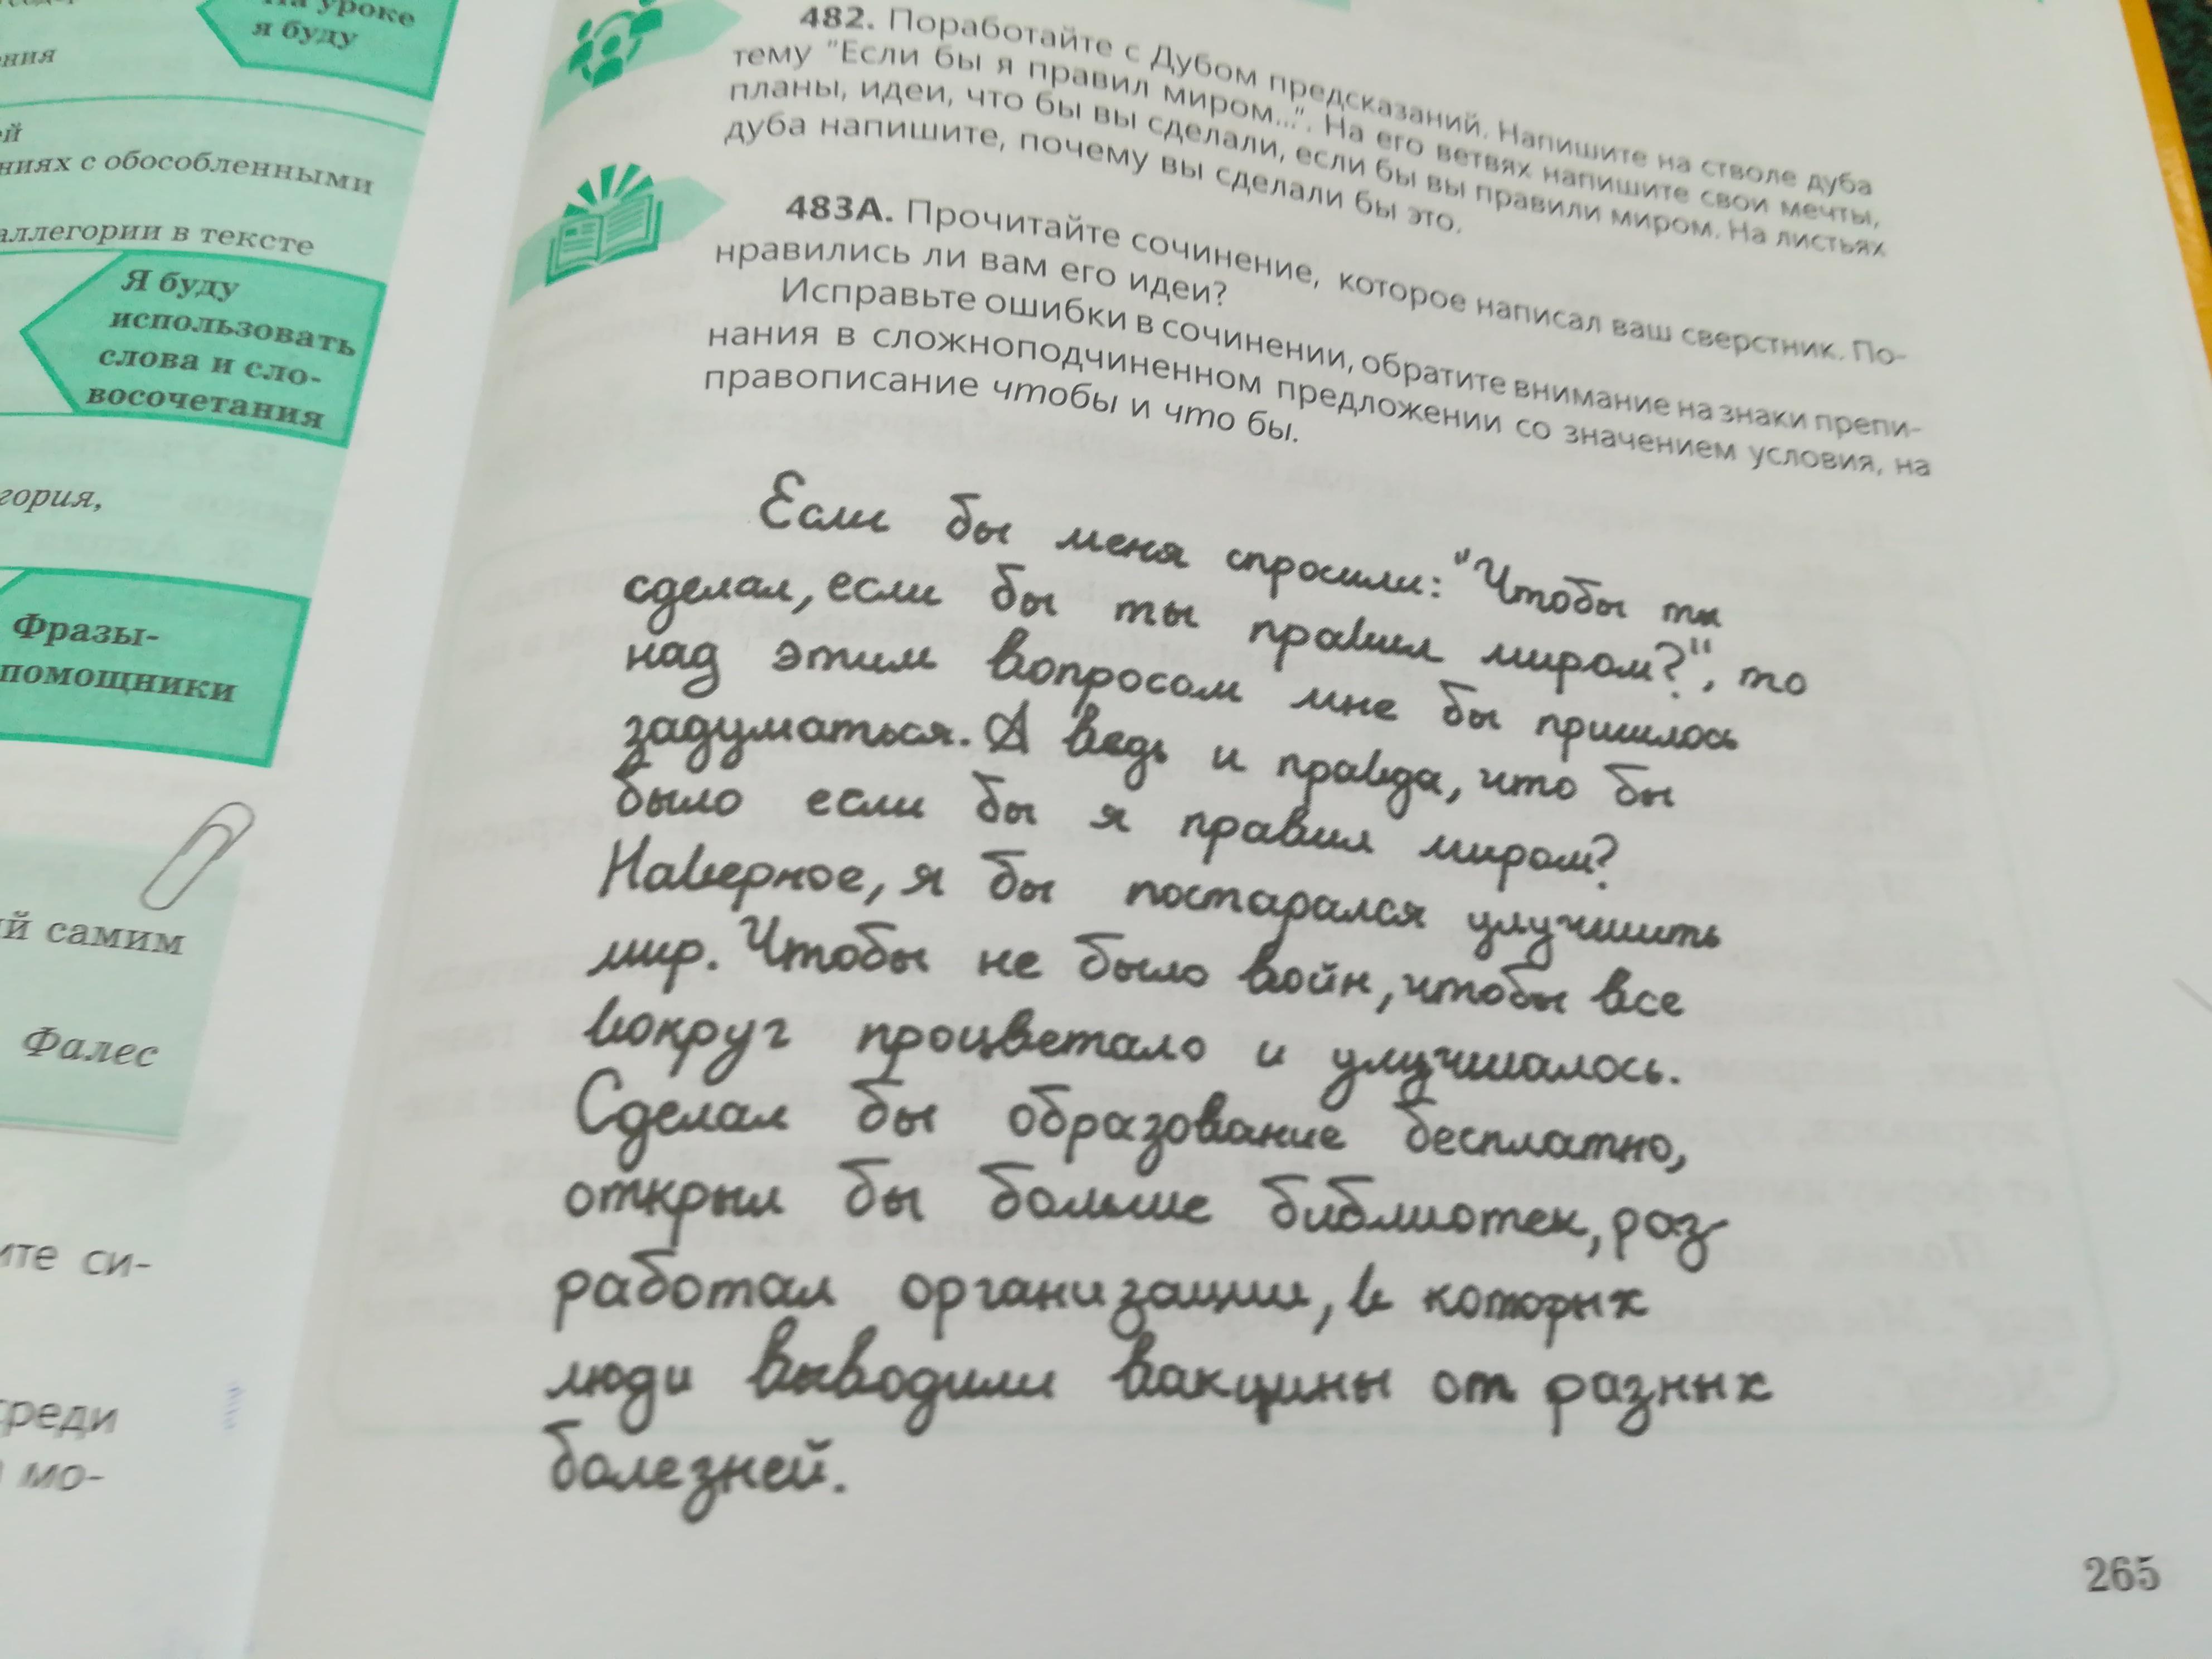 уроке
я буду
ния
й
ниях с обособленными
аллегории в тексте
Я буду
использовать
слова и сло-
восочетания
гория,
Фразы-
помощники
й самим
Фалес
ите си-
реди
мо-
482. Поработайте с Дубом предсказаний. Напишите на стволе дуба
тему "Если бы я правил миром...". На его ветвях напишите свои мечты,
планы, идеи, что бы вы сделали, если бы вы правили миром. На листьях
дуба напишите, почему вы сделали бы это.
483А. Прочитайте сочинение, которое написал ваш сверстник. По-
нравились ли вам его идеи?
Исправьте ошибки в сочинении, обратите внимание на знаки препи-
нания в сложноподчиненном предложении со значением условия, на
правописание чтобы и что бы.
Если бы меня спросили: "Чтобы ты
сделал, если бы ты правил миром?", то
над этим вопросом мне бы пришлось
задуматься. А ведь и правда, что бы
было если бы я правил миром?
Наверное, я бы постарался улучшить
мир. Чтобы не было войн, чтобы все
вокруг процветало и улучшалось.
Сделал бы образование бесплатно,
открыл бы больше библиотек, раз-
работал организации, в которых
люди выводили вакцины от разных
болезней.
265